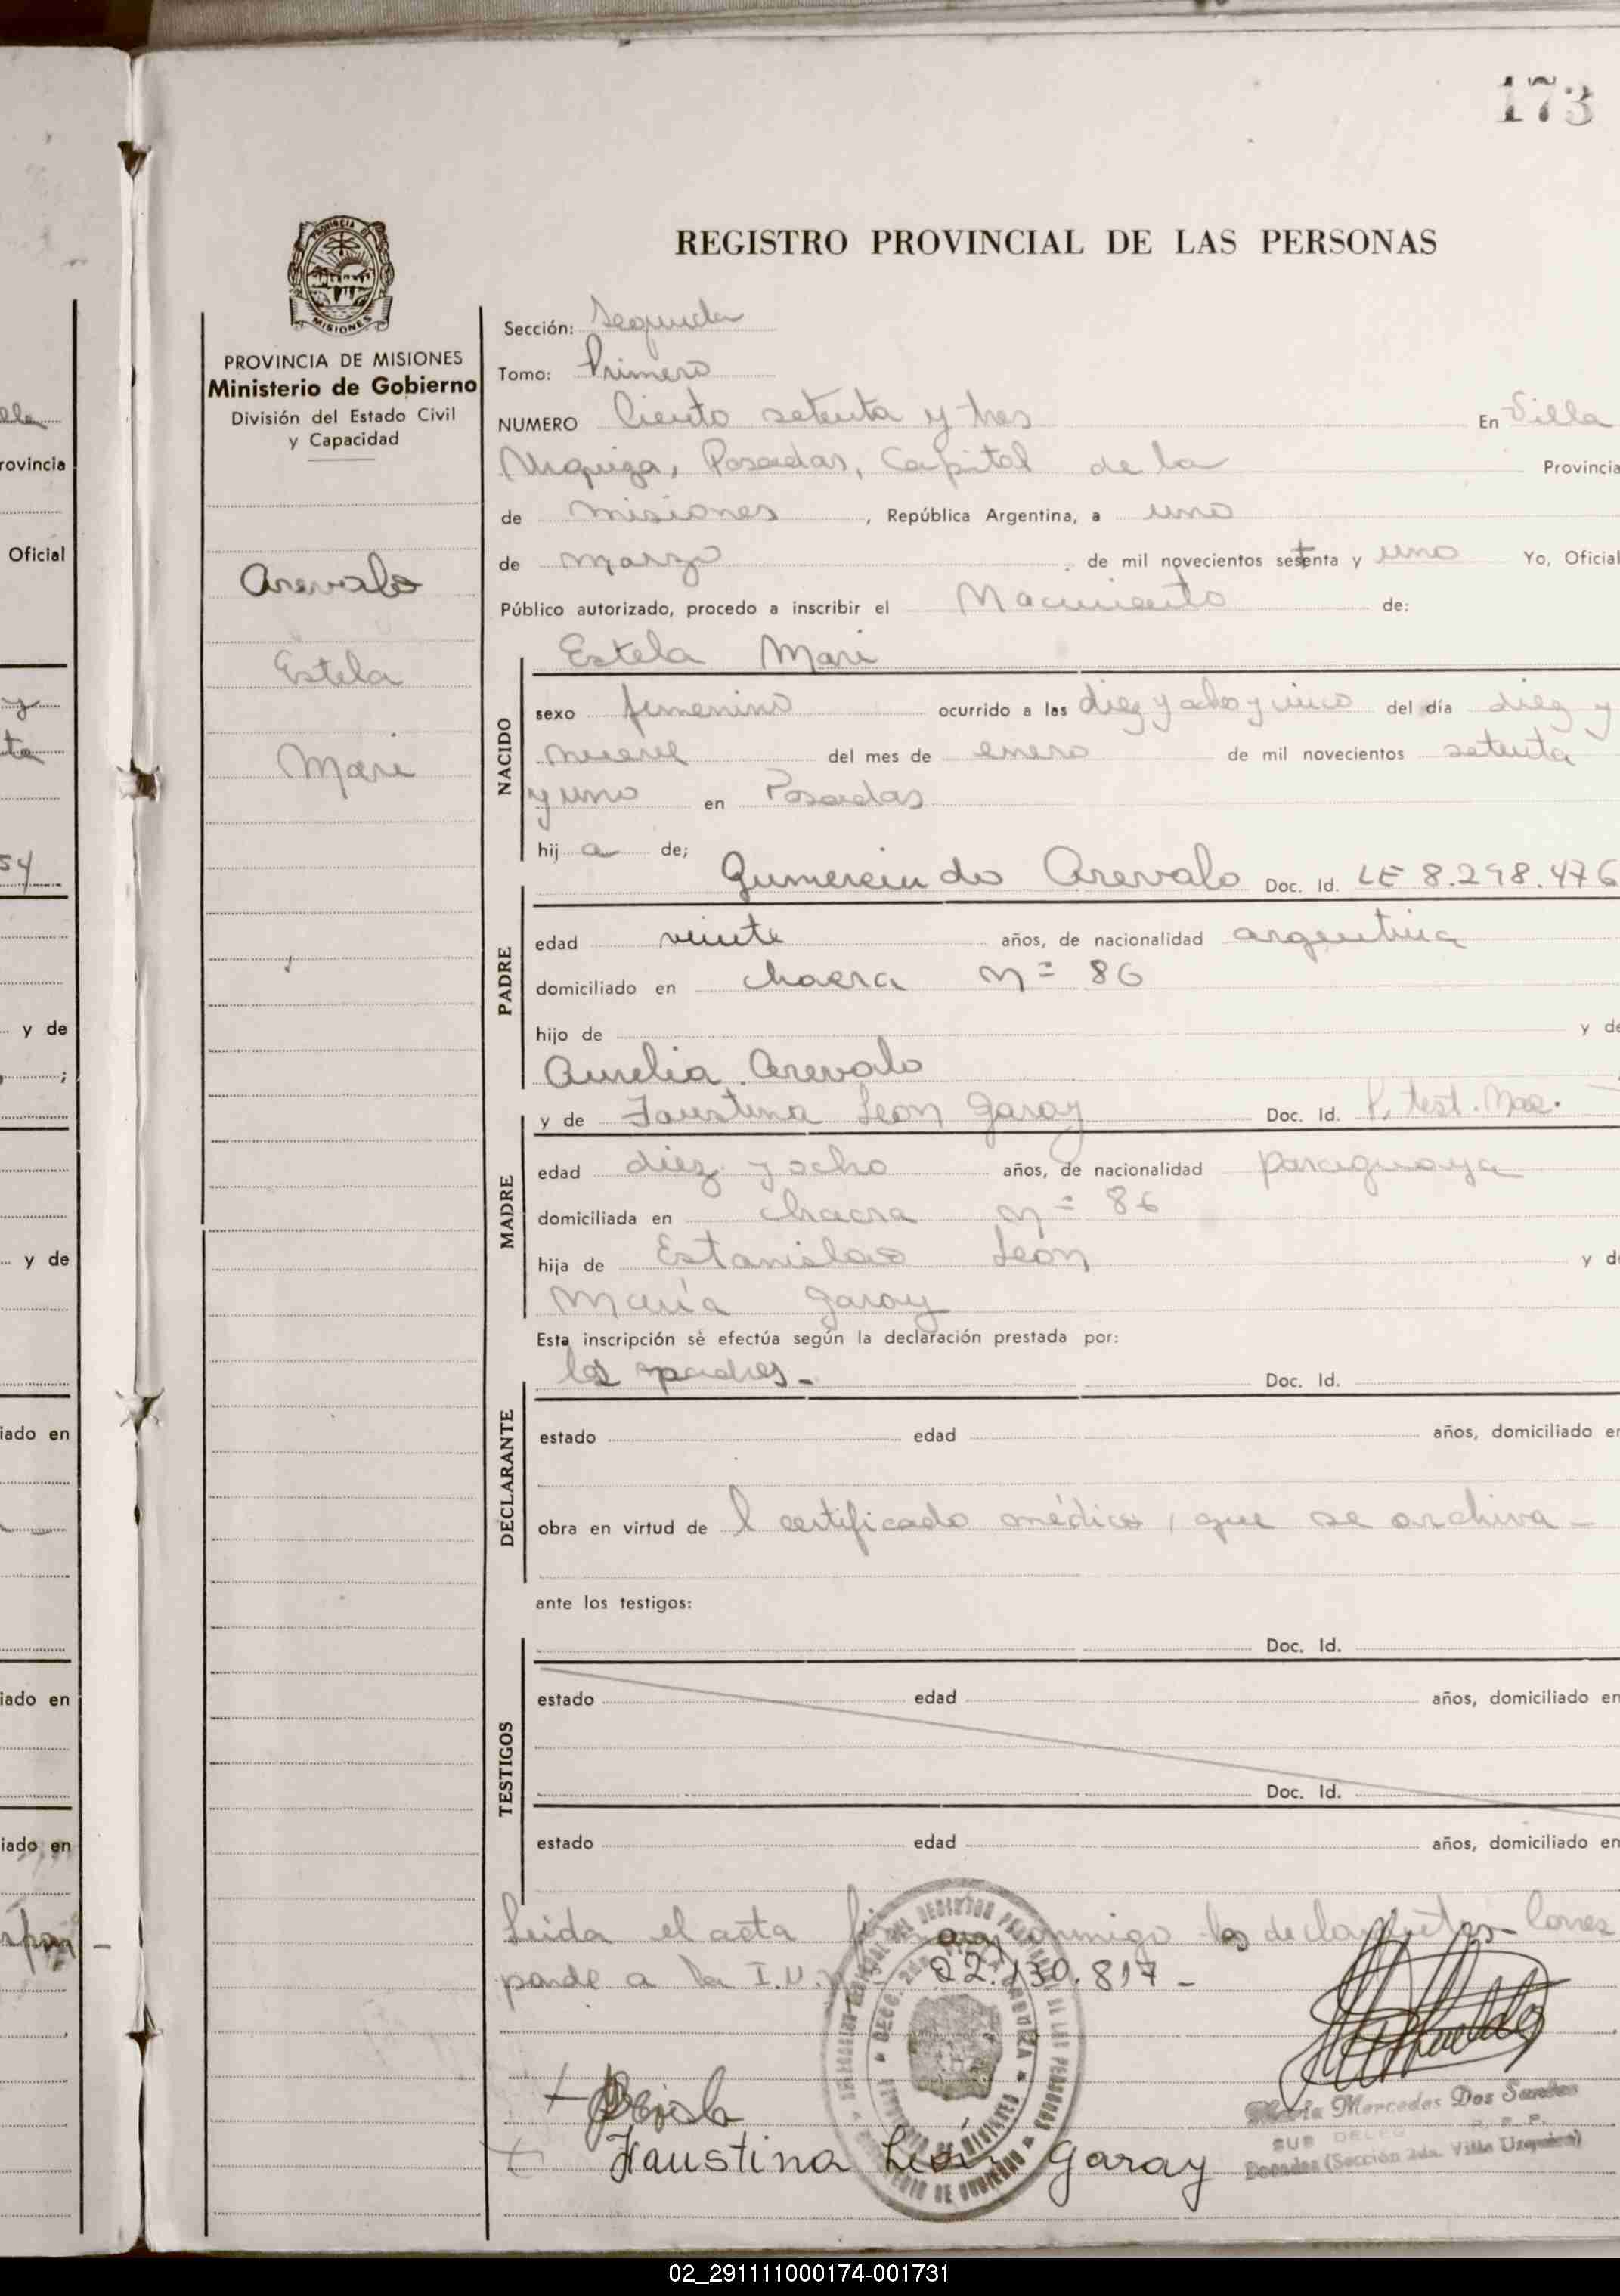 173
REGISTRO PROVINCIAL DE LAS PERSONAS
PROVINCIA DE MISIONES
Ministerio de Gobierno
División del Estado Civil
y Capacidad
Arevalo
Estela
Mari
Sección: Segunda
Tomo: Primero
NUMERO Ciento setenta y tres En Villa
Urquiza, Posadas, Capital de la Provincia
de misiones, República Argentina, a uno
de marzo de mil novecientos setenta y uno Yo, Oficial
Público autorizado, procedo a inscribir el Nacimiento de:
Estela Mari
NACIDO
sexo femenino ocurrido a las diez y ocho y cinco del día diez y
nueve del mes de enero de mil novecientos setenta
y uno en Posadas
hij a de;
Gumercindo Arevalo Doc. Id. LE 8.298.476
PADRE
edad veinte años, de nacionalidad argentina
domiciliado en chacra n= 86
hijo de y de
Aurelia Arevalo
y de Faustina León Garay Doc. Id. P. test. Nac.
MADRE
edad diez y ocho años, de nacionalidad paraguaya
domiciliada en chacra n= 86
hija de Estanislao León y d
María Garay
Esta inscripción se efectúa según la declaración prestada por:
los padres - Doc. Id.
DECLARANTE
estado edad años, domiciliado en
obra en virtud de l certificado médico, que se archiva -
ante los testigos:
Doc. Id.
TESTIGOS
estado edad años, domiciliado en
Doc. Id.
estado edad años, domiciliado en
Leida el acta conmigo los declarantes - Corres
ponde a la I.U. 22.130.817 -
Faustina León Garay
Maria Mercedes Dos Santos
SUB DELEG
Posadas (Sección 2da. Villa Urquiza)
lle
rovincia
Oficial
y
ta
54
y de
;
y de
iado en
iado en
iado en
02_291111000174-001731